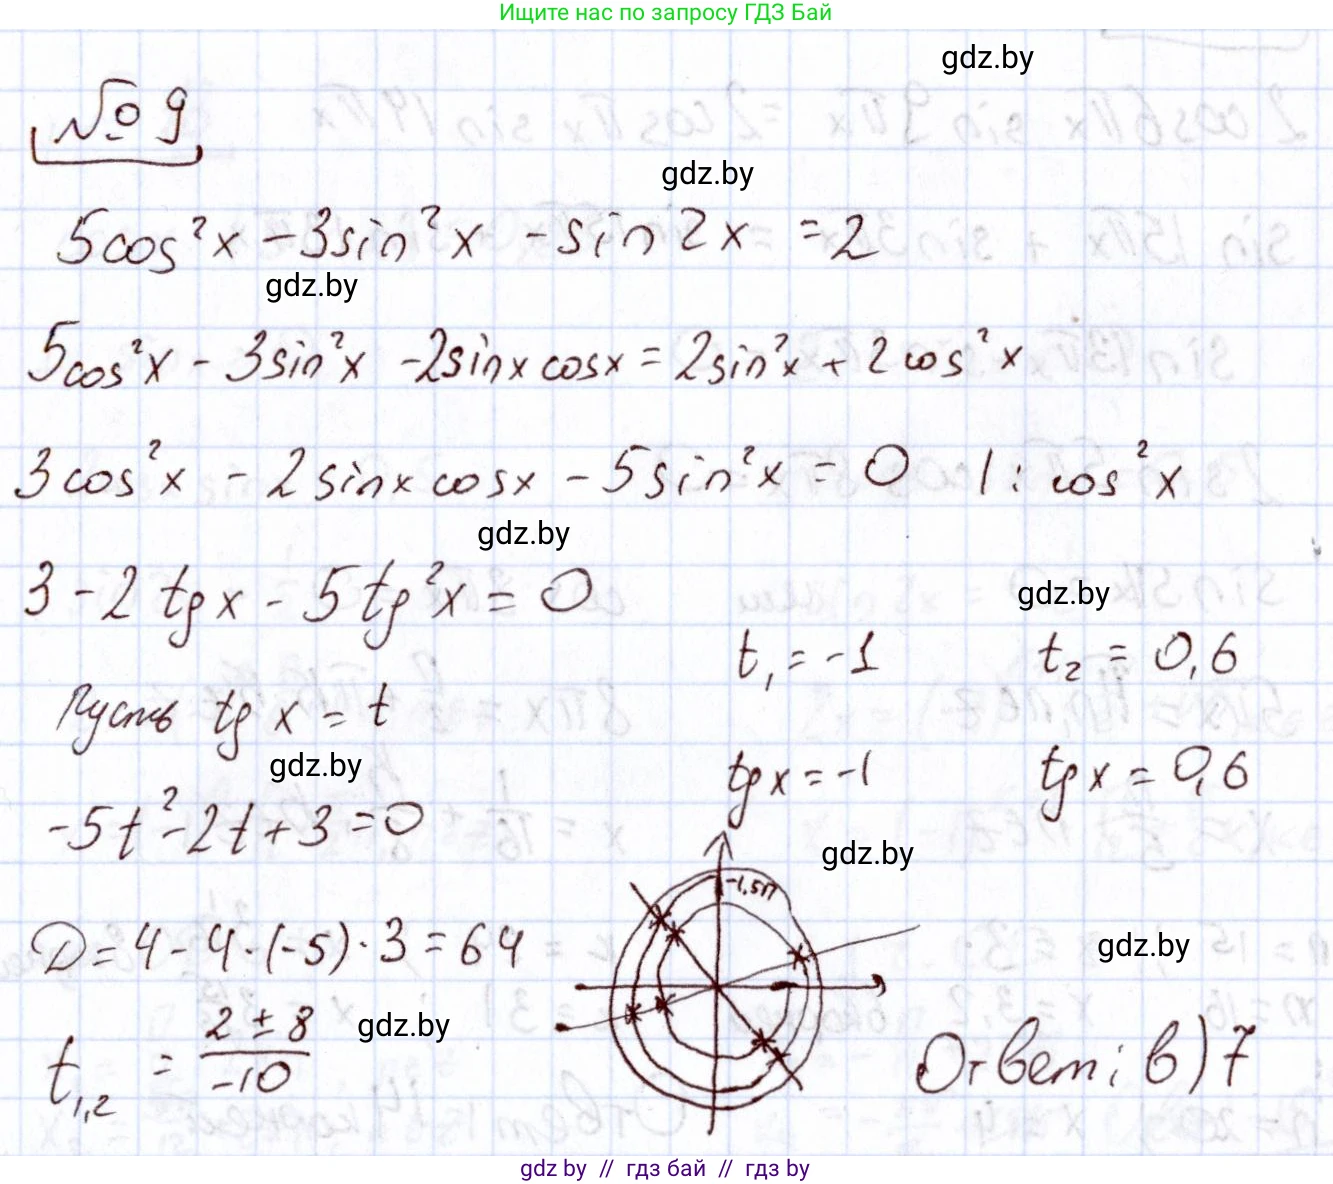 Ищите нас по запросу ГДЗ Бай
gdz.by
№ 9
gdz.by
5cos²x - 3sin²x - sin 2x = 2
gdz.by
5cos²x - 3sin²x - 2sinx cosx = 2sin²x + 2cos²x
3cos²x - 2sinx cosx - 5sin²x = 0 | : cos²x
gdz.by
3 - 2tgx - 5tg²x = 0
gdz.by
t₁ = -1 t₂ = 0,6
Пусть tg x = t
gdz.by
tgx = -1 tgx = 0,6
-5t² - 2t + 3 = 0
gdz.by
-1,5π
D = 4 - 4·(-5)·3 = 64
gdz.by
t₁,₂ = (2 ± 8)/(-10)
gdz.by
Ответ: в) 7
gdz by // гдз бай // gdz by